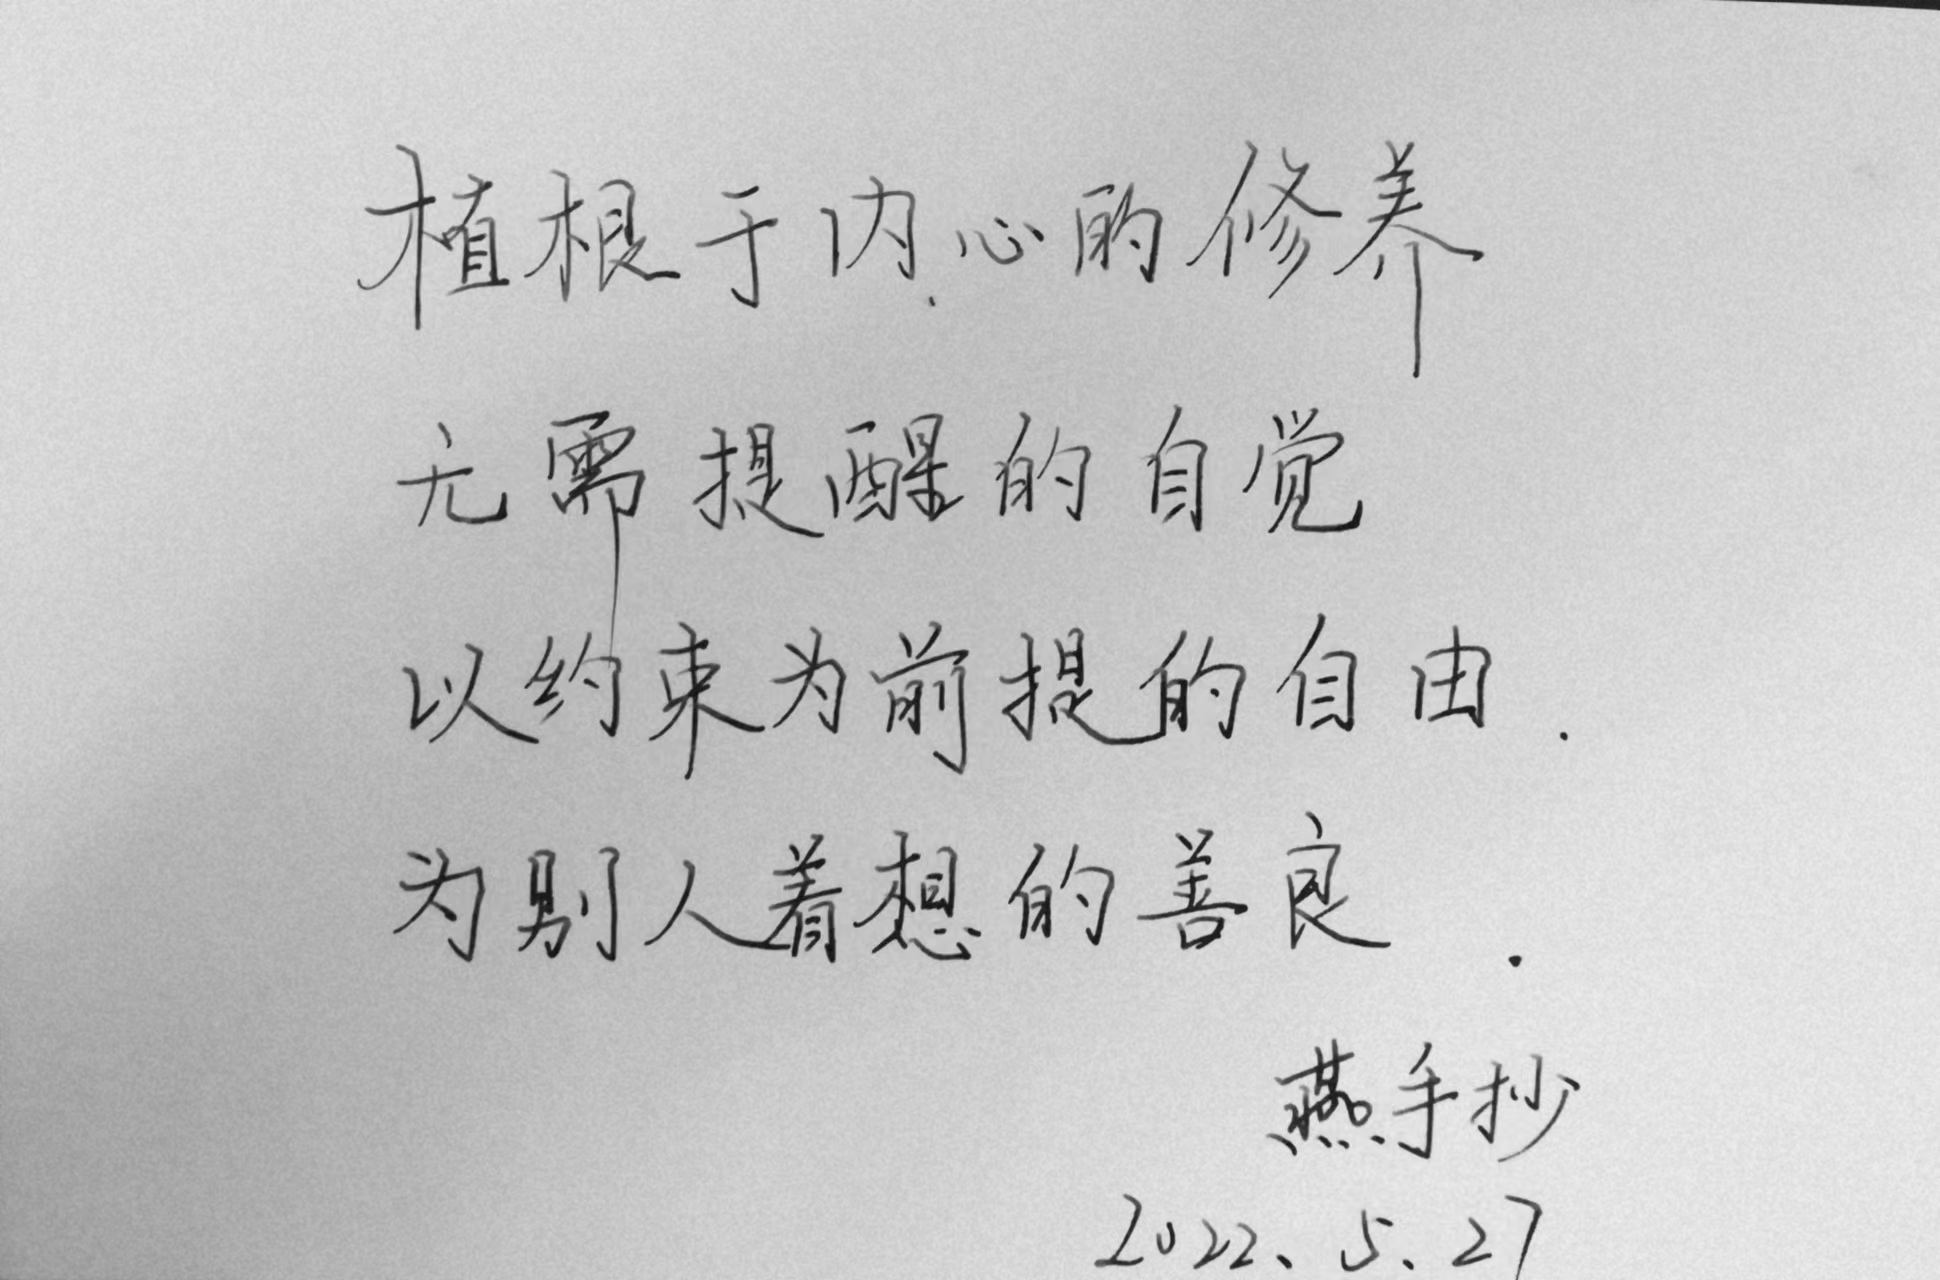 植根于内心的修养
无需提醒的自觉
以约束为前提的自由.
为别人着想的善良.
燕手抄
2022、5、27